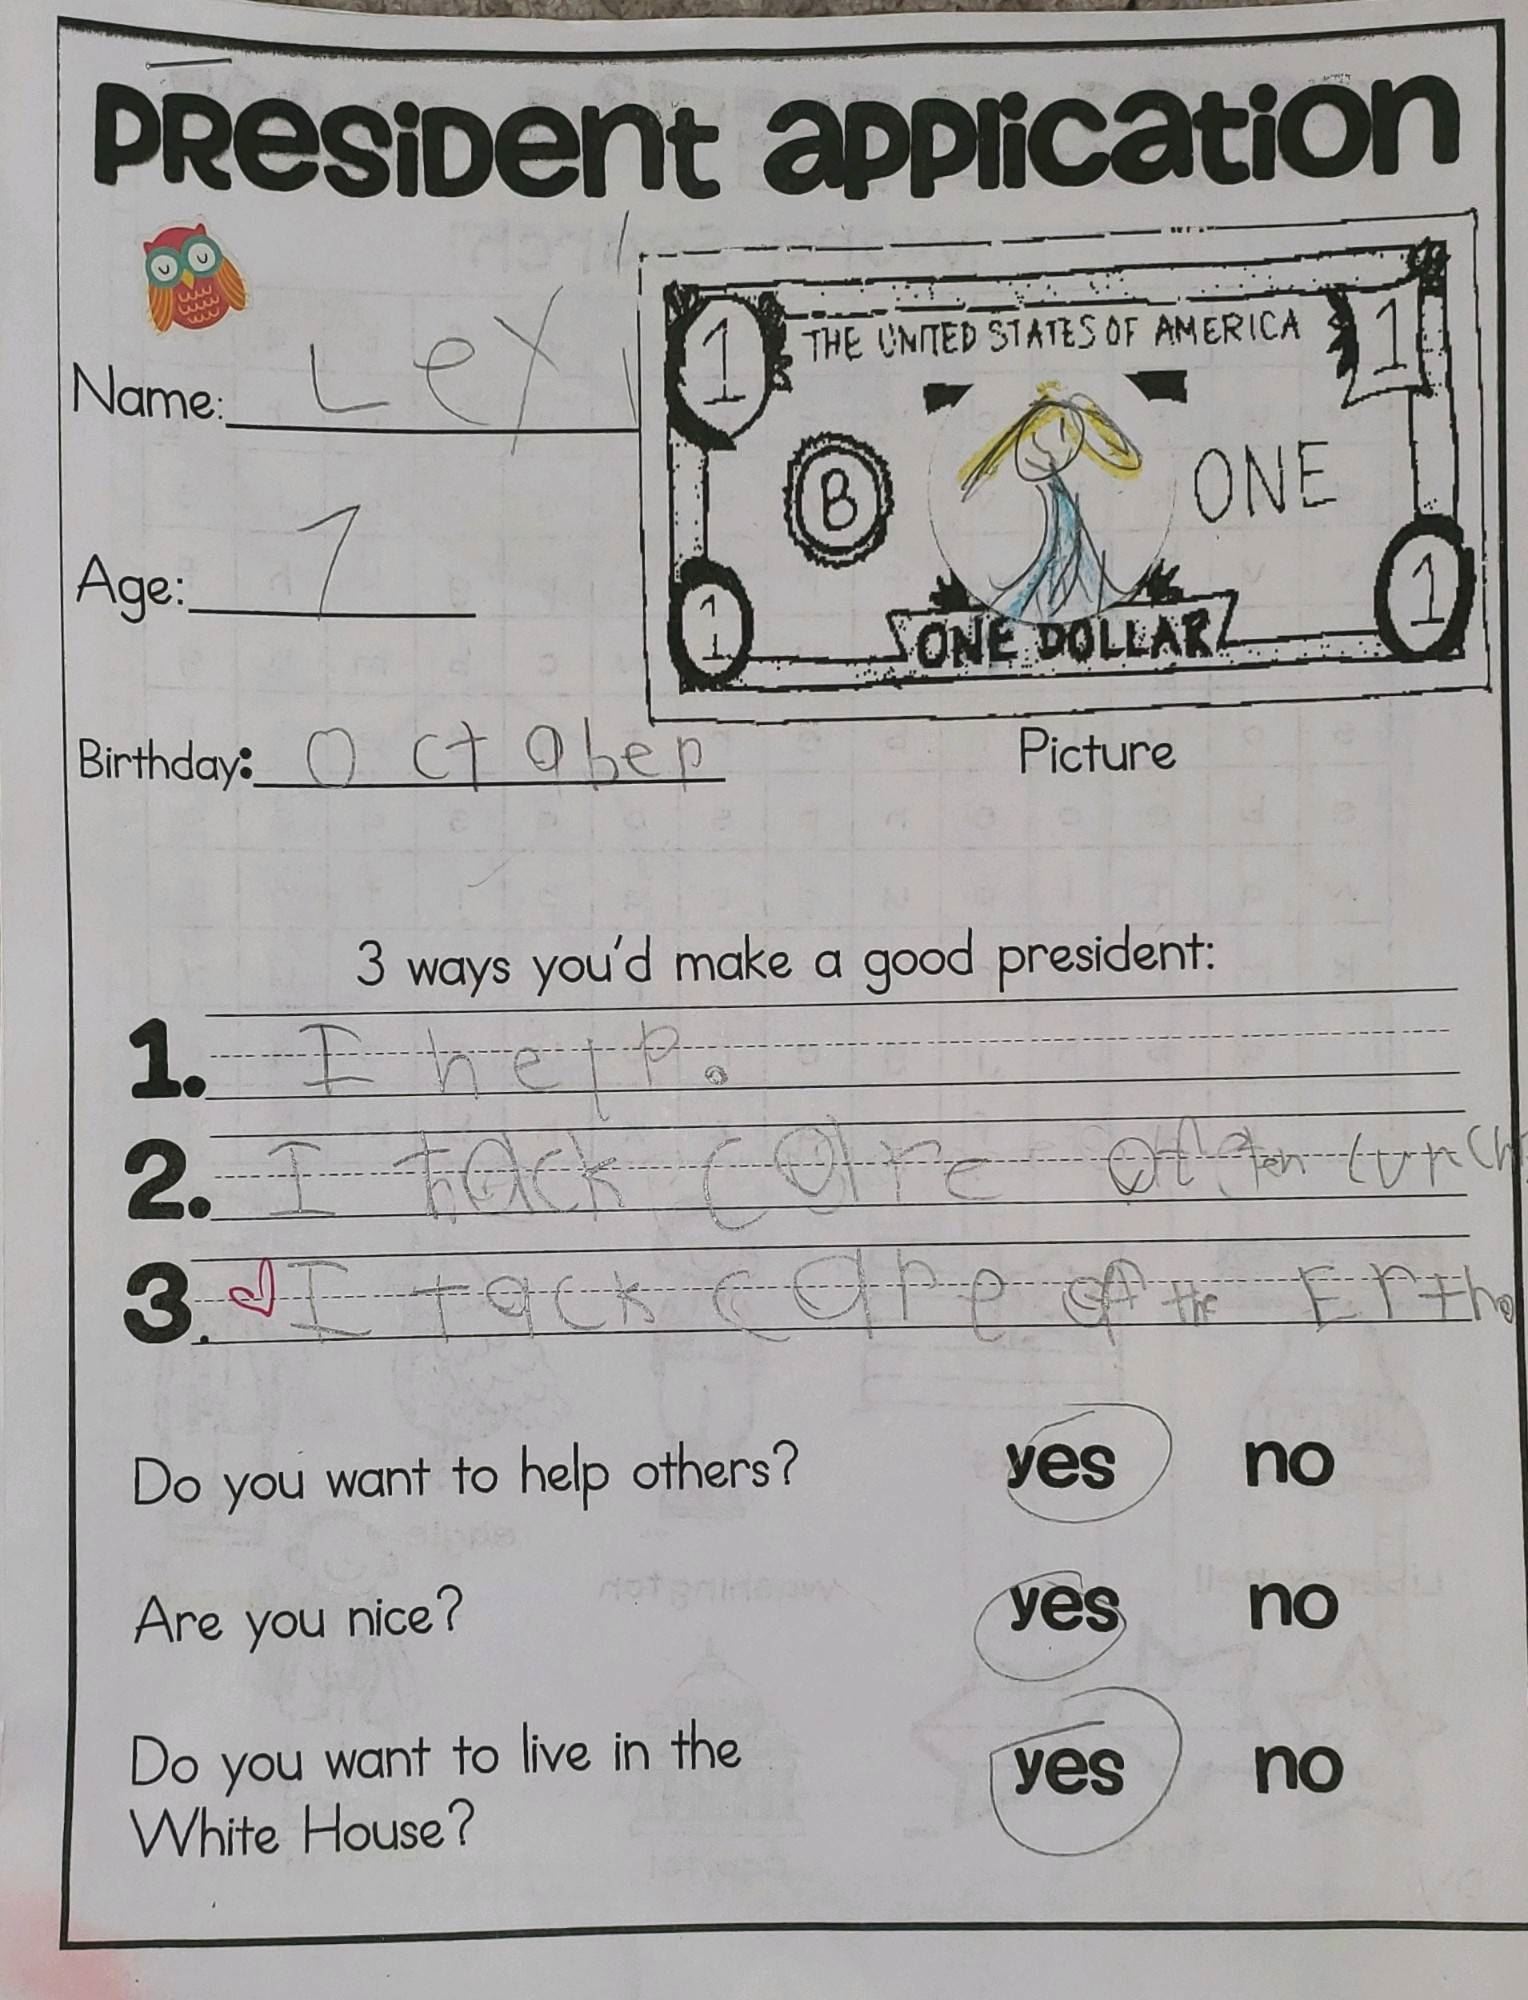 PResiDent application
Name: Lexi
THE UNITED STATES OF AMERICA
1
1
B
ONE
Age: 7
1
1
ONE DOLLAR
Birthday: October
Picture
3 ways you'd make a good president:
1. I help.
2. I tack care of
3. I tack care of the Erth.
Do you want to help others? yes no
Are you nice? yes no
Do you want to live in the yes no
White House?